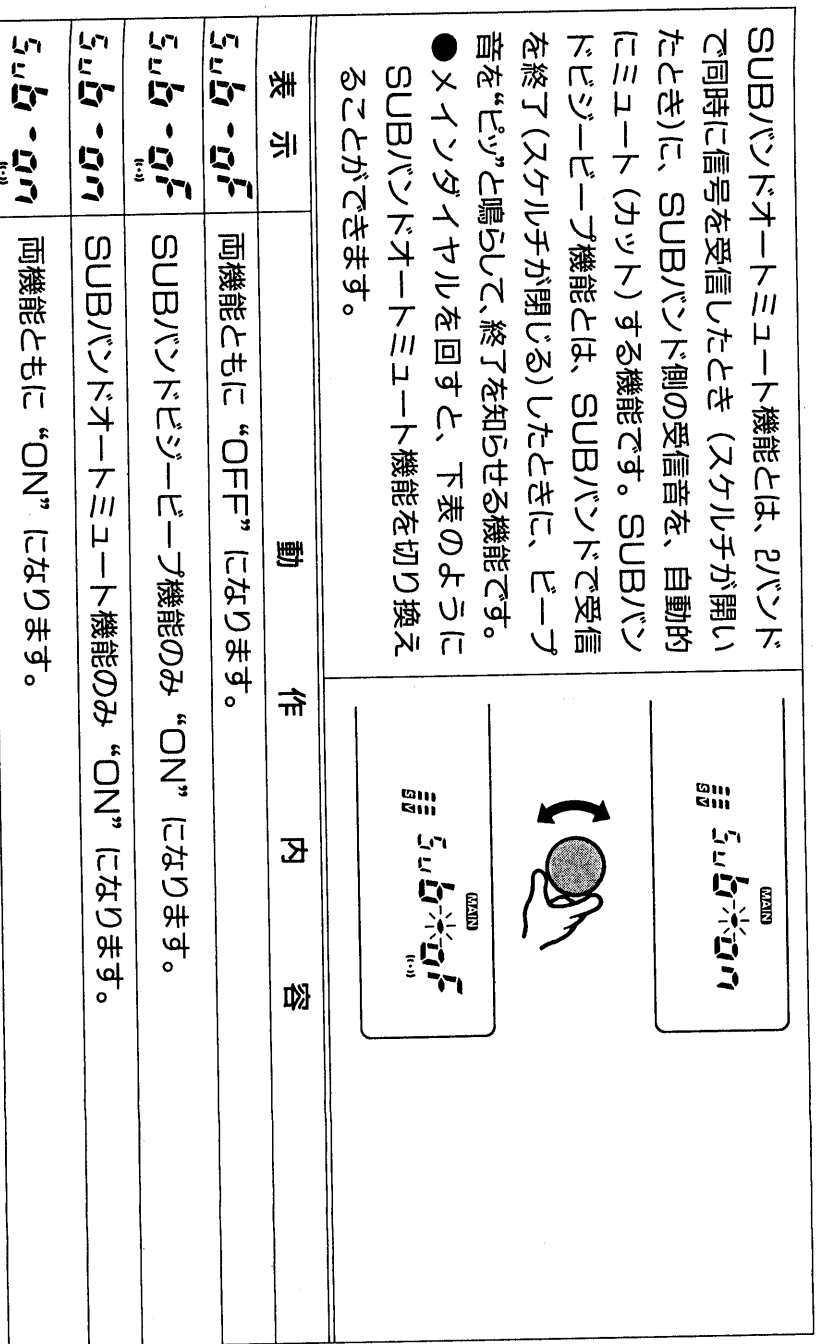 SUBバンドオートミュート機能とは、2バンド
で同時に信号を受信したとき（スケルチが開い
たとき）に、SUBバンド側の受信音を、自動的
にミュート（カット）する機能です。SUBバン
ドビジービープ機能とは、SUBバンドで受信
を終了（スケルチが閉じる）したときに、ビープ
音を“ピッ”と鳴らして、終了を知らせる機能です。
●メインダイヤルを回すと、下表のように
SUBバンドオートミュート機能を切り換え
ることができます。
MAIN
Sub-on
S V
MAIN
Sub-oF
S V
表示 動作内容
Sub-oF 両機能ともに“OFF”になります。
Sub-oF SUBバンドビジービープ機能のみ“ON”になります。
Sub-on SUBバンドオートミュート機能のみ“ON”になります。
Sub-on 両機能ともに“ON”になります。